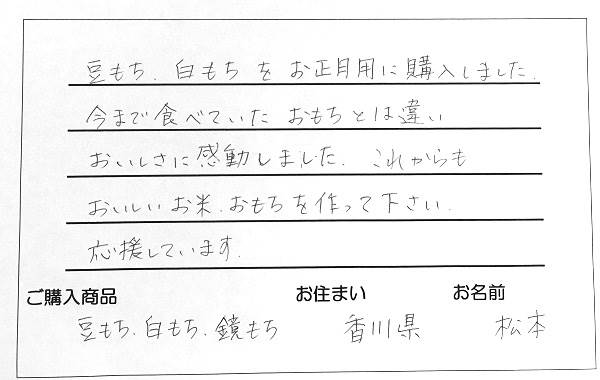 豆もち、白もち を お正月用に購入しました。
今まで食べていた おもちとは違い
おいしさに感動しました。 これからも
おいしいお米、おもちを作って下さい。
応援しています。
ご購入商品 お住まい お名前
豆もち、白もち、鏡もち 香川県 松本